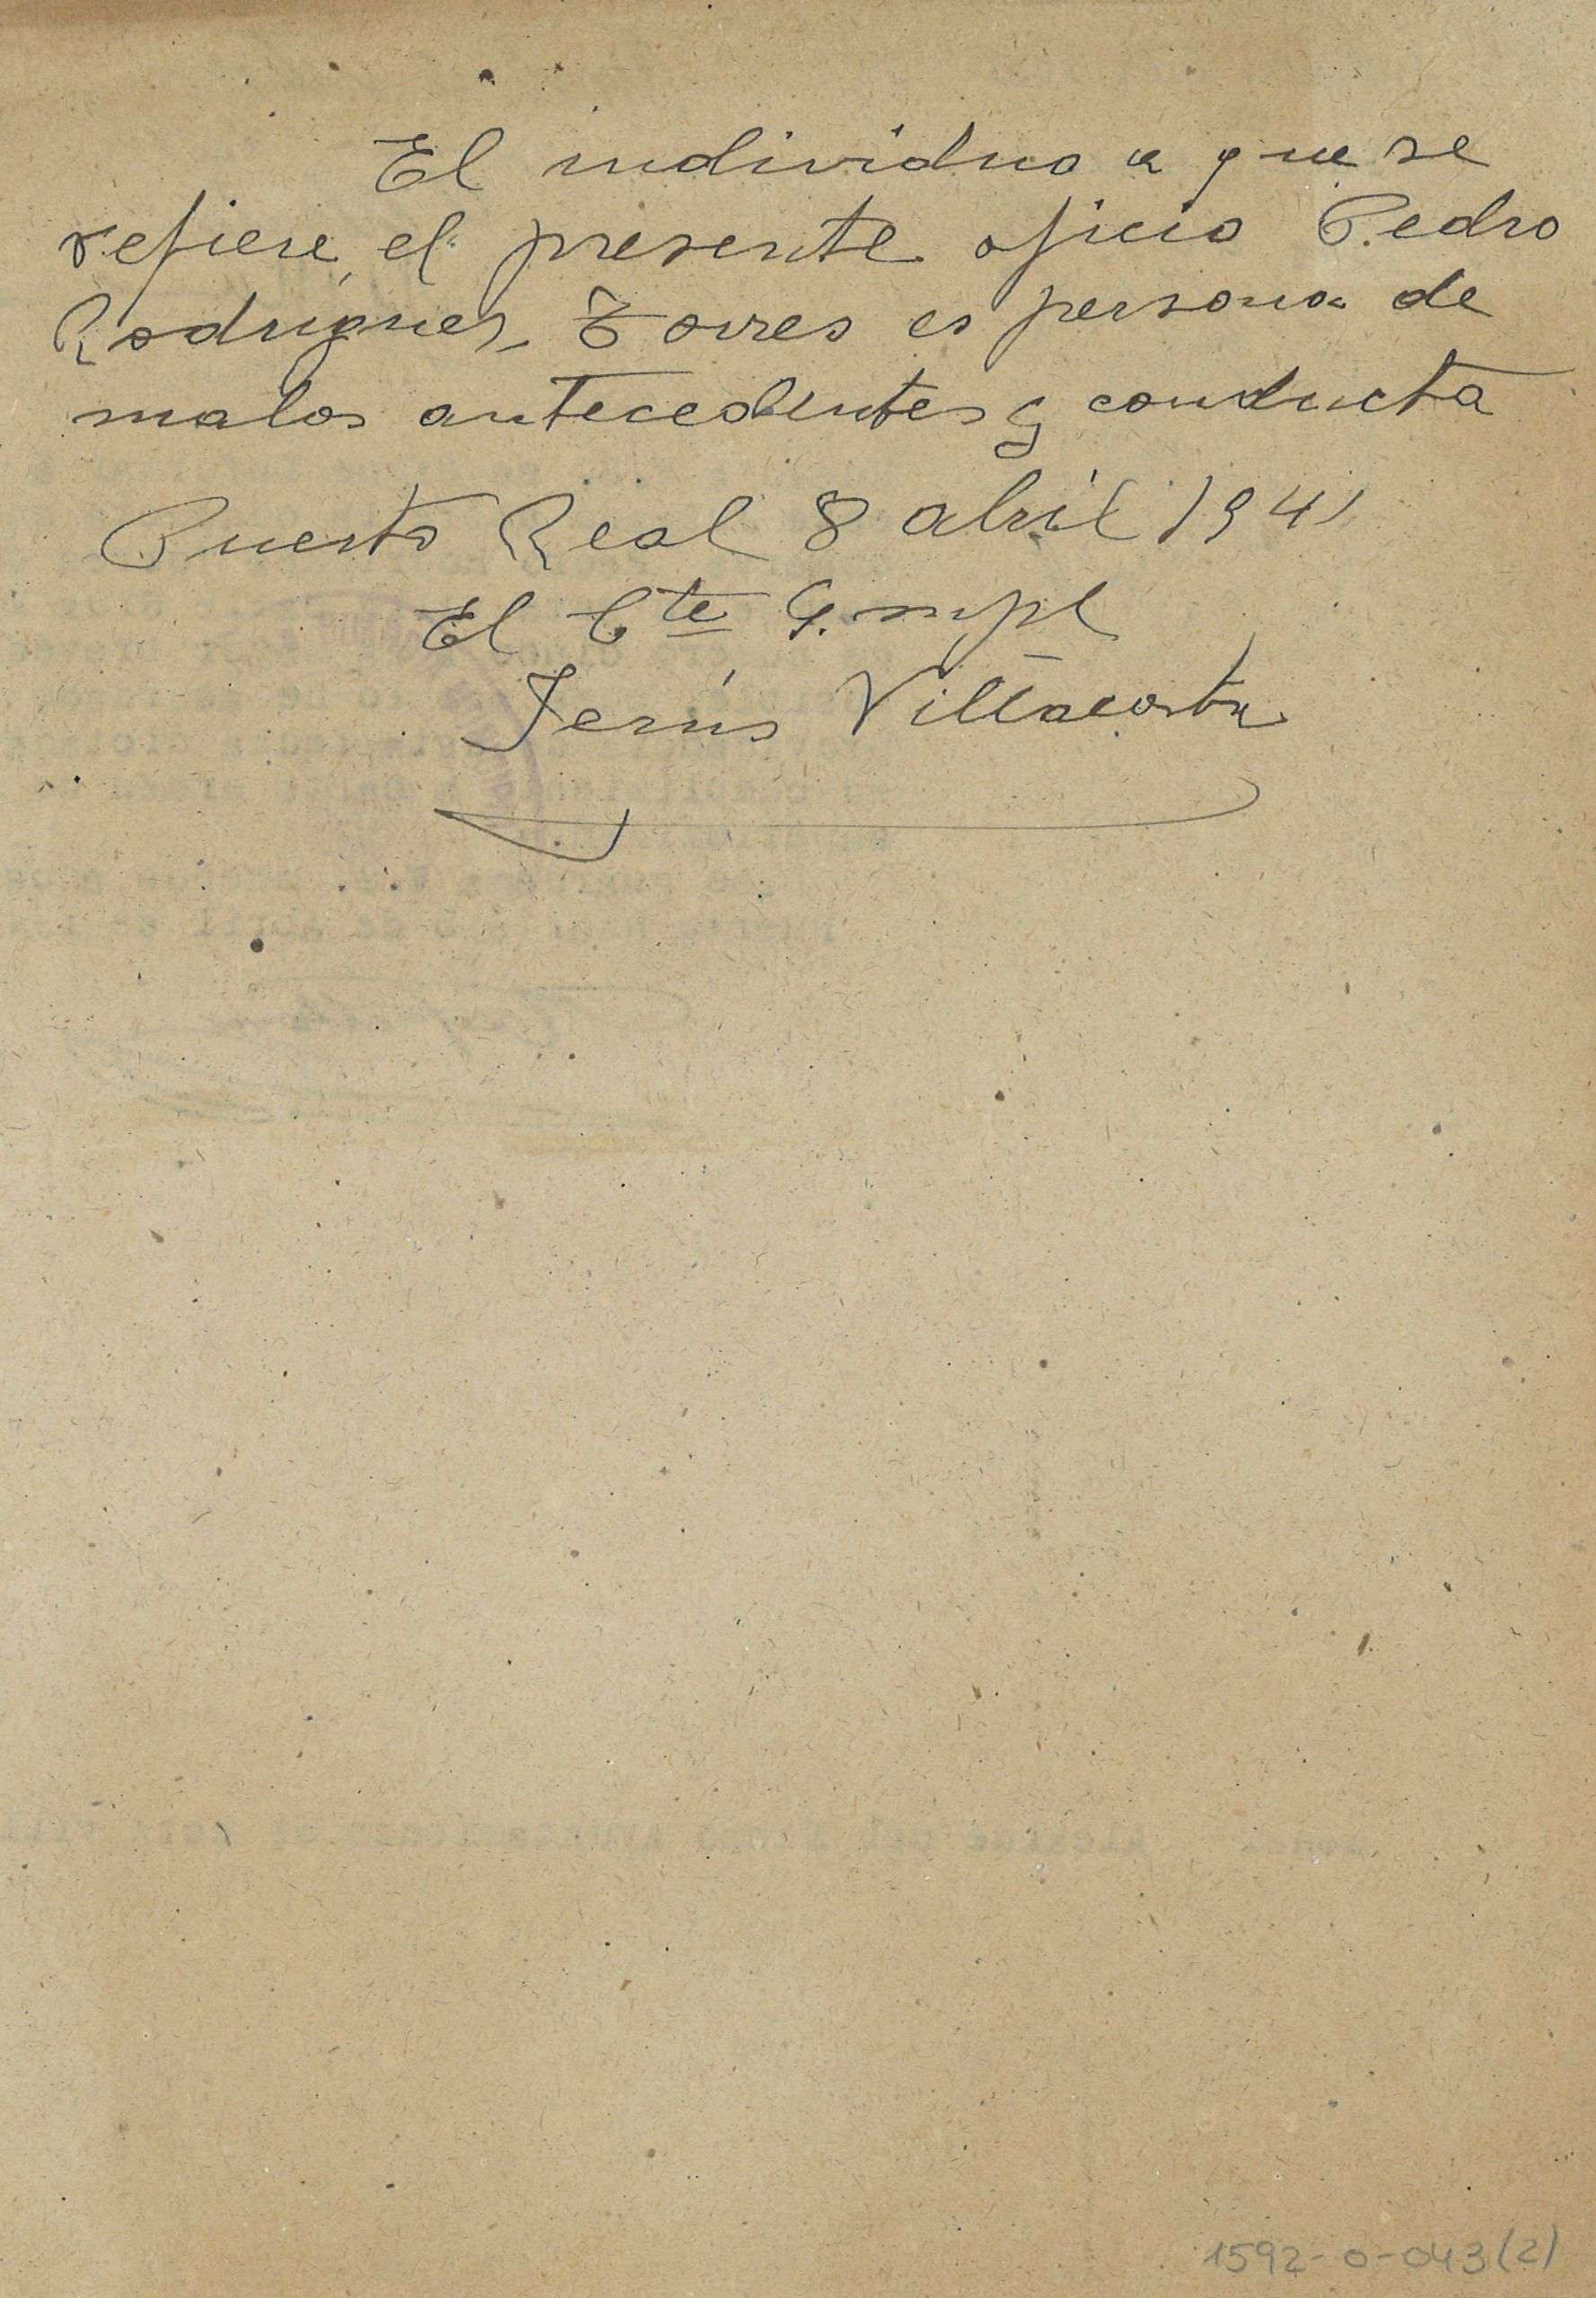 El individuo a que se
refiere el presente oficio Pedro
Rodriguez Torres es persona de
malos antecedentes y conducta
Puerto Real 8 abril 1941
El Cte G. mpl
Jesús Villacorta
1592-0-043(2)